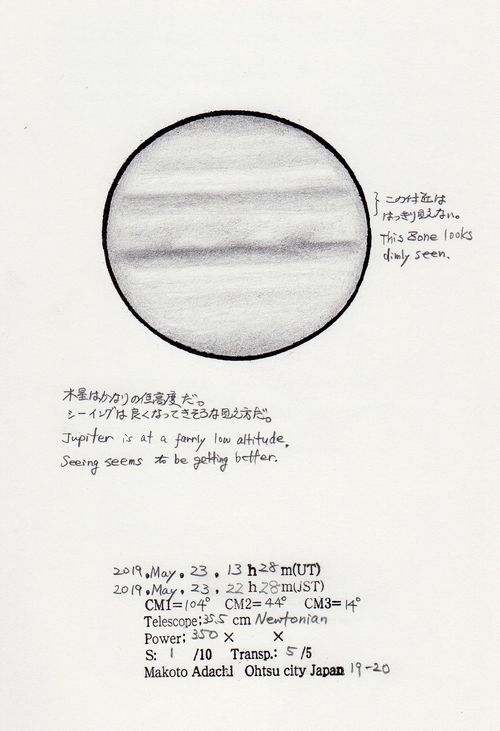 この付近は
はっきり見えない。
This Zone looks
dimly seen.
木星はかなりの低高度だ。
シーイングは良くなってきそうな見え方だ。
Jupiter is at a farrly low altitude.
Seeing seems to be getting better.
2019.May.23.13h28m(UT)
2019.May.23.22h28m(JST)
CM1=104° CM2=44° CM3=14°
Telescope:35.5 cm Newtonian
Power:350× ×
S: 1 /10 Transp.: 5/5
Makoto Adachi Ohtsu city Japan 19-20